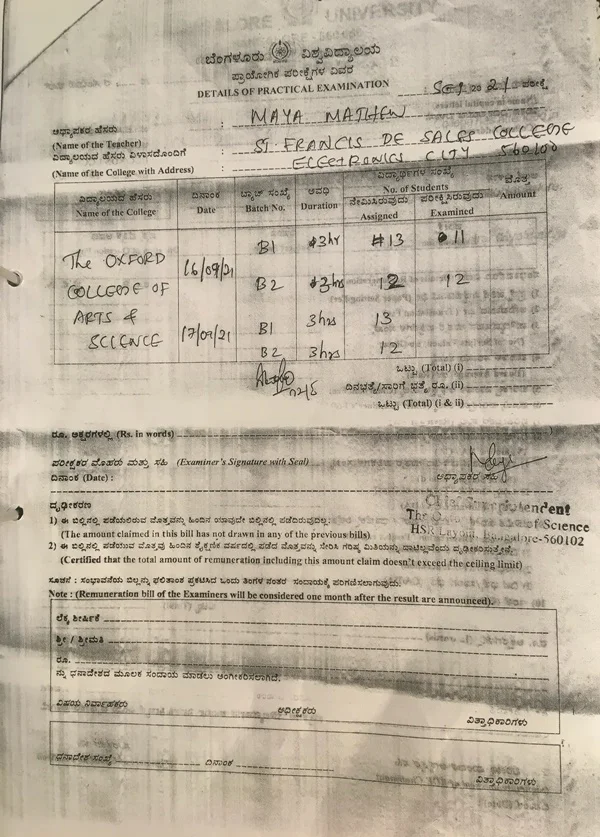 ಬೆಂಗಳೂರು ವಿಶ್ವವಿದ್ಯಾಲಯ
ಪ್ರಾಯೋಗಿಕ ಪರೀಕ್ಷೆಗಳ ವಿವರ
DETAILS OF PRACTICAL EXAMINATION : 2021 ಪರೀಕ್ಷೆ
ಅಧ್ಯಾಪಕರ ಹೆಸರು : MAYA MATHEW
(Name of the Teacher)
ವಿದ್ಯಾಲಯದ ಹೆಸರು ವಿಳಾಸದೊಂದಿಗೆ : ST. FRANCIS DE SALES COLLEGE
(Name of the College with Address) : ELECTRONICS CITY 560100
ವಿದ್ಯಾಲಯದ ಹೆಸರು ದಿನಾಂಕ ಬ್ಯಾಚ್ ಸಂಖ್ಯೆ ಅವಧಿ ವಿದ್ಯಾರ್ಥಿಗಳ ಸಂಖ್ಯೆ ಮೊತ್ತ
Name of the College Date Batch No. Duration No. of Students Amount
ನೇಮಿಸಿರುವುದು ಪರೀಕ್ಷಿಸಿರುವುದು
Assigned Examined
The OXFORD COLLEGE OF ARTS & SCIENCE
16/09/21 B1 3hr 13 11
B2 3hrs 12 12
17/09/21 B1 3hrs 13
B2 3hrs 12
ಒಟ್ಟು (Total) (i)
ದಿನಭತ್ಯೆ/ಸಾರಿಗೆ ಭತ್ಯೆ ರೂ. (ii)
ಒಟ್ಟು (Total) (i & ii)
ರೂ. ಅಕ್ಷರಗಳಲ್ಲಿ (Rs. in words)
ಪರೀಕ್ಷಕರ ಮೊಹರು ಮತ್ತು ಸಹಿ (Examiner's Signature with Seal)
ದಿನಾಂಕ (Date) : ಅಧ್ಯಾಪಕರ ಸಹಿ
ದೃಢೀಕರಣ
Chief Superintendent
1) ಈ ಬಿಲ್ಲಿನಲ್ಲಿ ಪಡೆಯಲಿರುವ ಮೊತ್ತವನ್ನು ಹಿಂದಿನ ಯಾವುದೇ ಬಿಲ್ಲಿನಲ್ಲಿ ಪಡೆದಿರುವುದಿಲ್ಲ.
The of Science
(The amount claimed in this bill has not drawn in any of the previous bills)
HSR Layout, Bangalore-560102
2) ಈ ಬಿಲ್ಲಿನಲ್ಲಿ ಪಡೆಯುವ ಮೊತ್ತವು ಹಿಂದಿನ ಶೈಕ್ಷಣಿಕ ವರ್ಷದಲ್ಲಿ ಪಡೆದ ಮೊತ್ತವನ್ನು ಸೇರಿಸಿ ಗರಿಷ್ಠ ಮಿತಿಯನ್ನು ದಾಟಿಲ್ಲವೆಂದು ದೃಢೀಕರಿಸುತ್ತೇನೆ.
(Certified that the total amount of remuneration including this amount claim doesn't exceed the ceiling limit)
ಸೂಚನೆ : ಸಂಭಾವನೆಯ ಬಿಲ್ಲನ್ನು ಫಲಿತಾಂಶ ಪ್ರಕಟಿಸಿದ ಒಂದು ತಿಂಗಳ ನಂತರ ಸಂದಾಯಕ್ಕೆ ಪರಿಗಣಿಸಲಾಗುವುದು.
Note : (Remuneration bill of the Examiners will be considered one month after the result are announced).
ಲೆಕ್ಕ ಶೀರ್ಷಿಕೆ
ಶ್ರೀ / ಶ್ರೀಮತಿ
ರೂ.
ನ್ನು ಧನಾದೇಶದ ಮೂಲಕ ಸಂದಾಯ ಮಾಡಲು ಅಂಗೀಕರಿಸಲಾಗಿದೆ.
ವಿಷಯ ನಿರ್ವಾಹಕರು ಅಧೀಕ್ಷಕರು ವಿತ್ತಾಧಿಕಾರಿಗಳು
ಧನಾದೇಶ ಸಂಖ್ಯೆ ದಿನಾಂಕ ವಿತ್ತಾಧಿಕಾರಿಗಳು